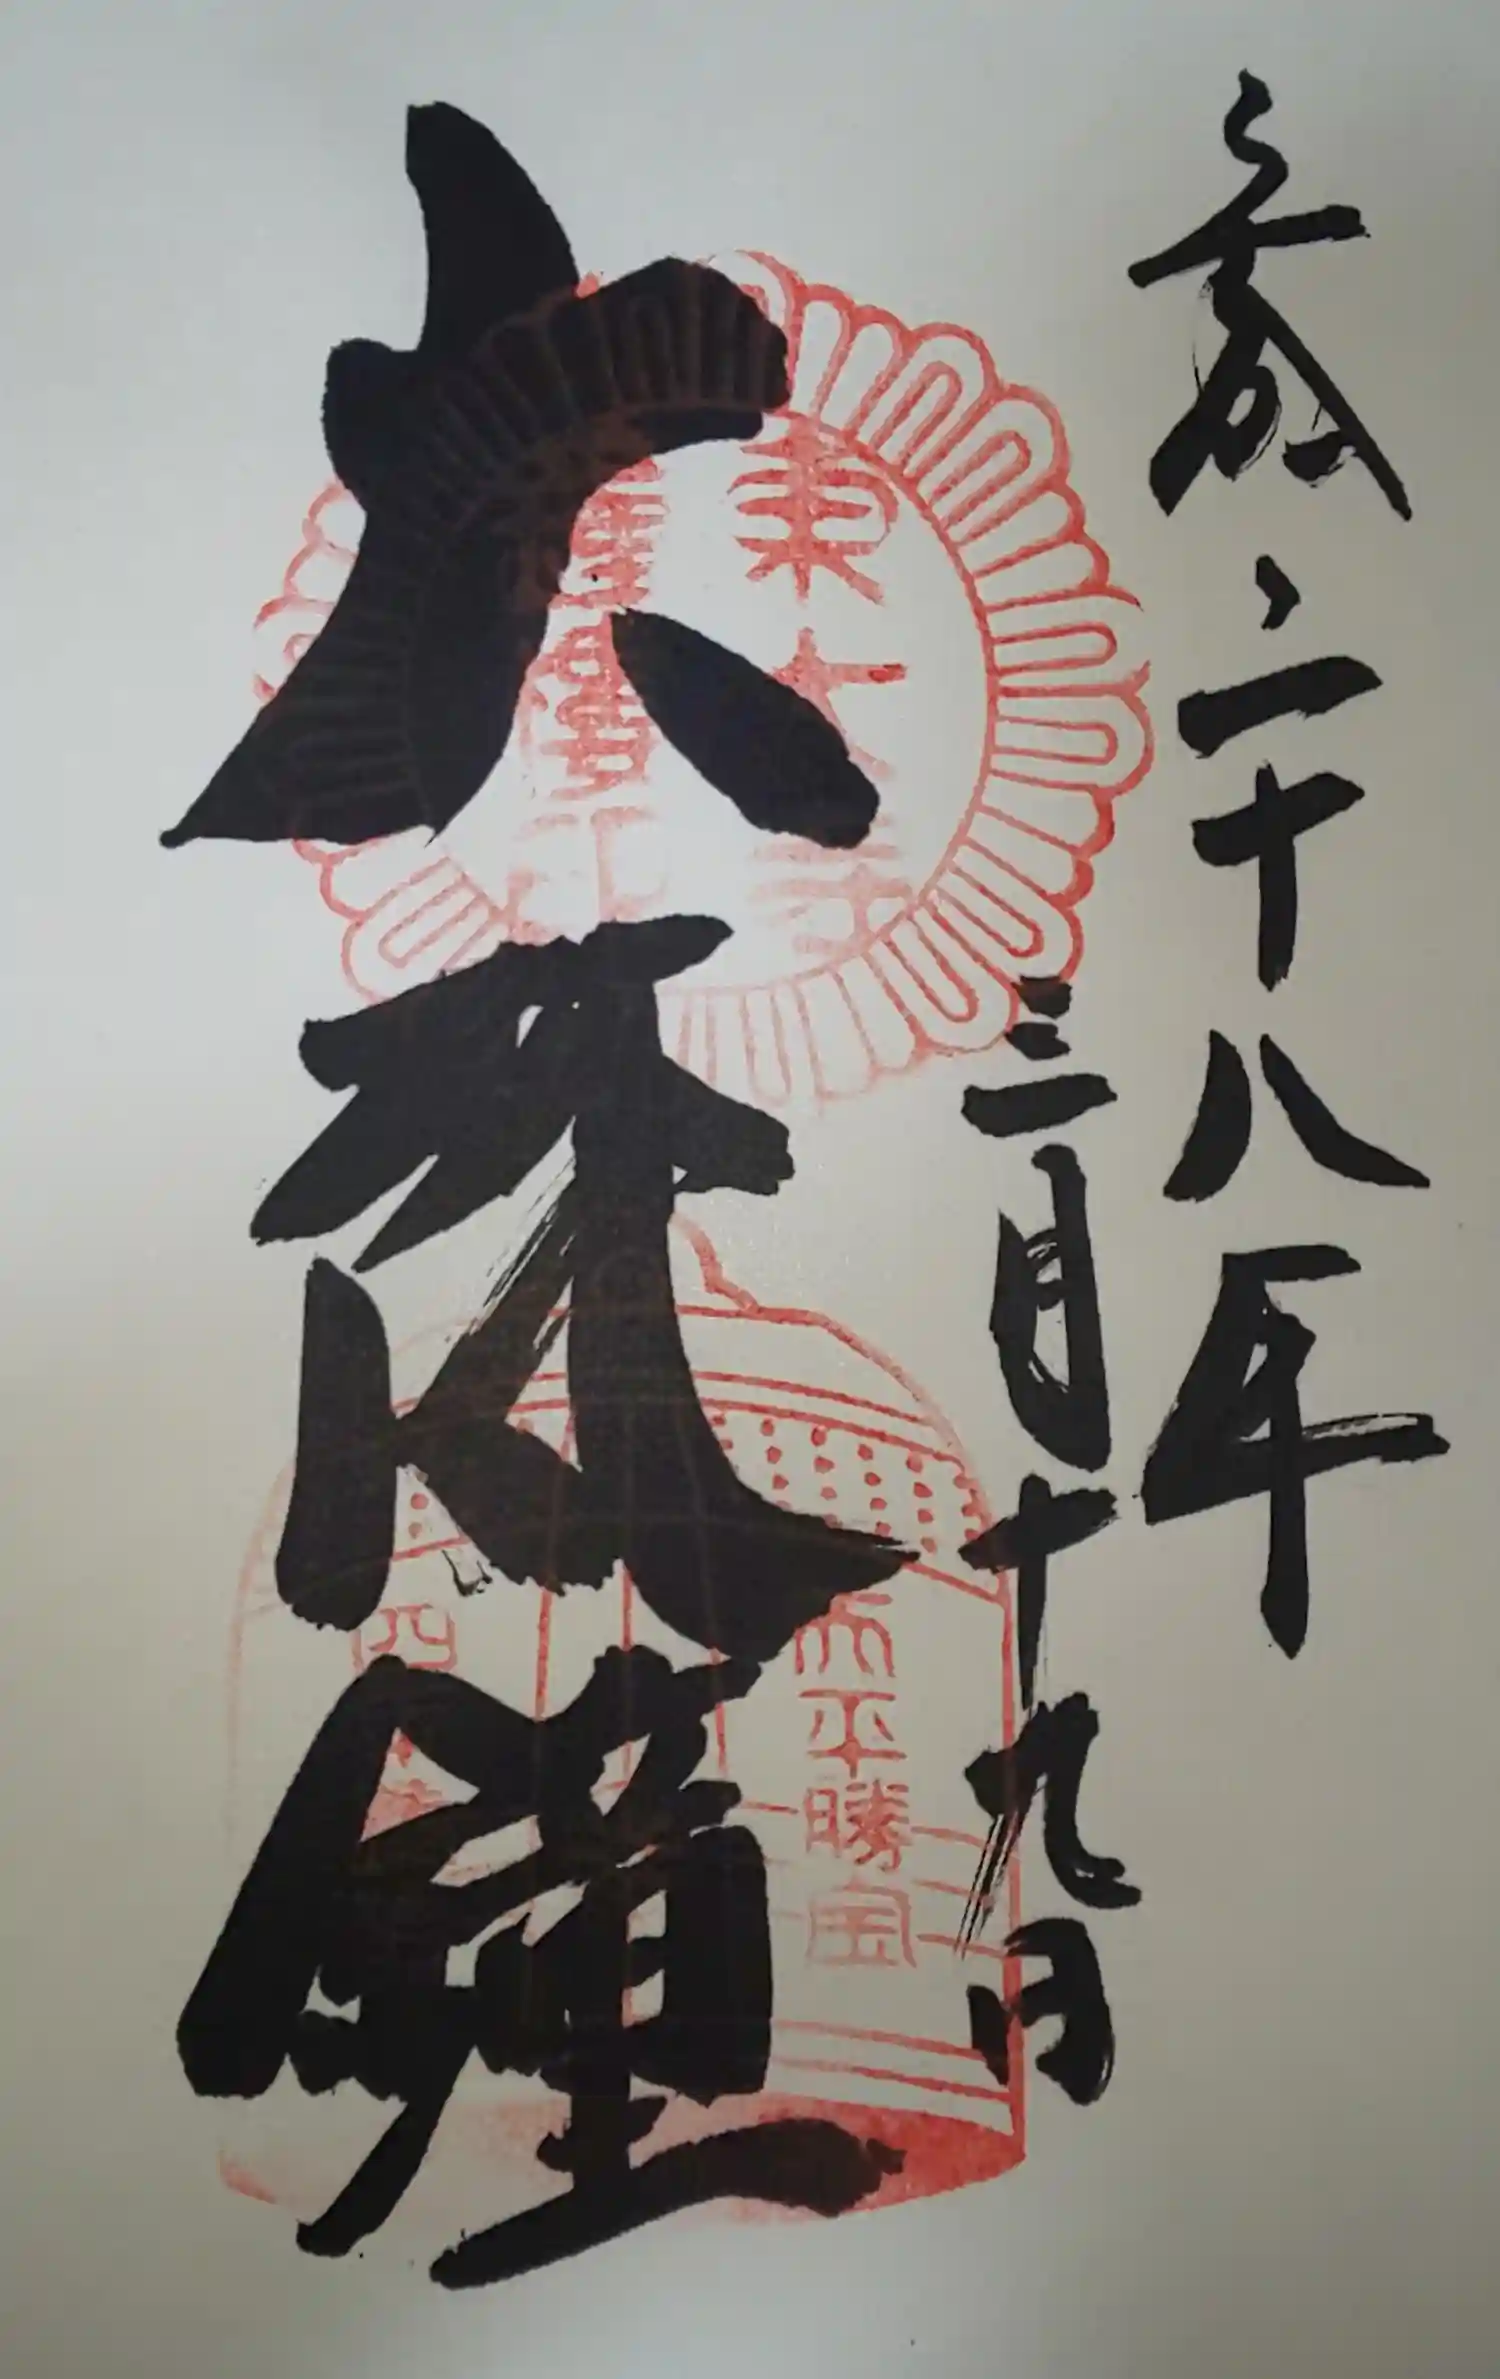 二十八年
三月十九日
大梵鐘
東大寺
天平勝宝
四